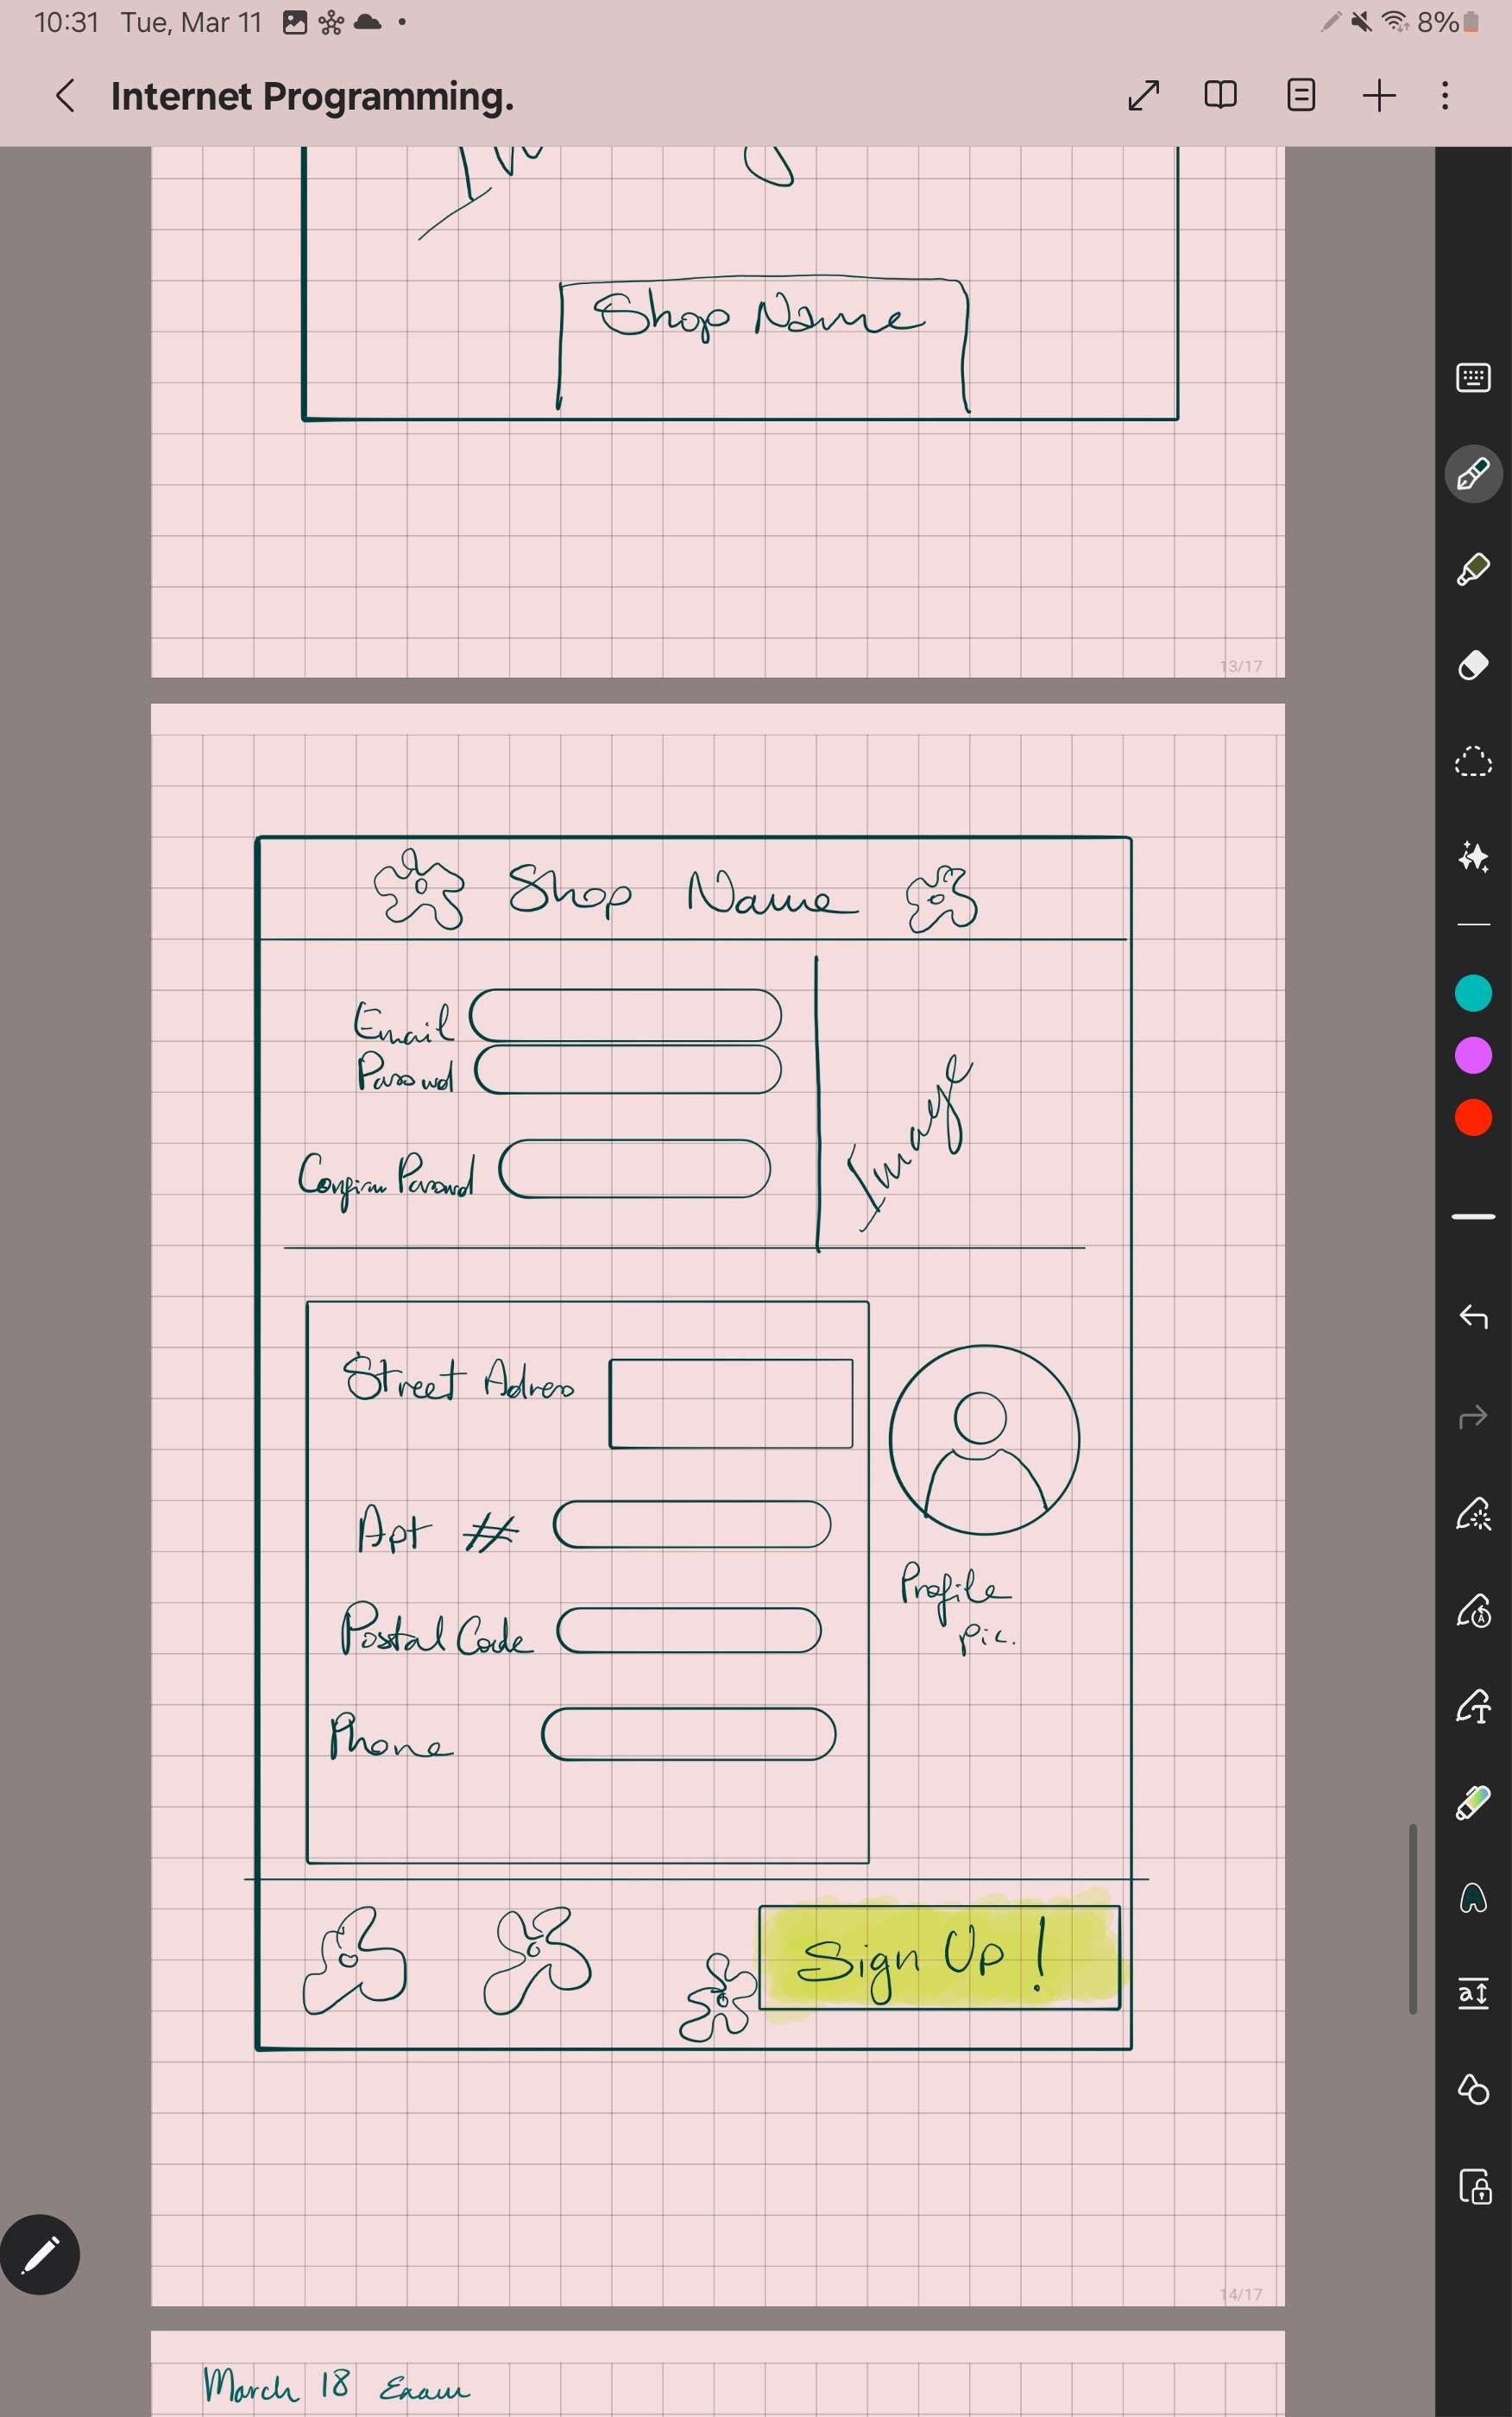 10:31 Tue, Mar 11
8%
Internet Programming.
Shop Name
13/17
Shop Name
Email
Password
Confirm Password
Image
Street Adress
Apt #
Postal Code
Phone
Profile
pic.
Sign Up!
14/17
March 18 Exam